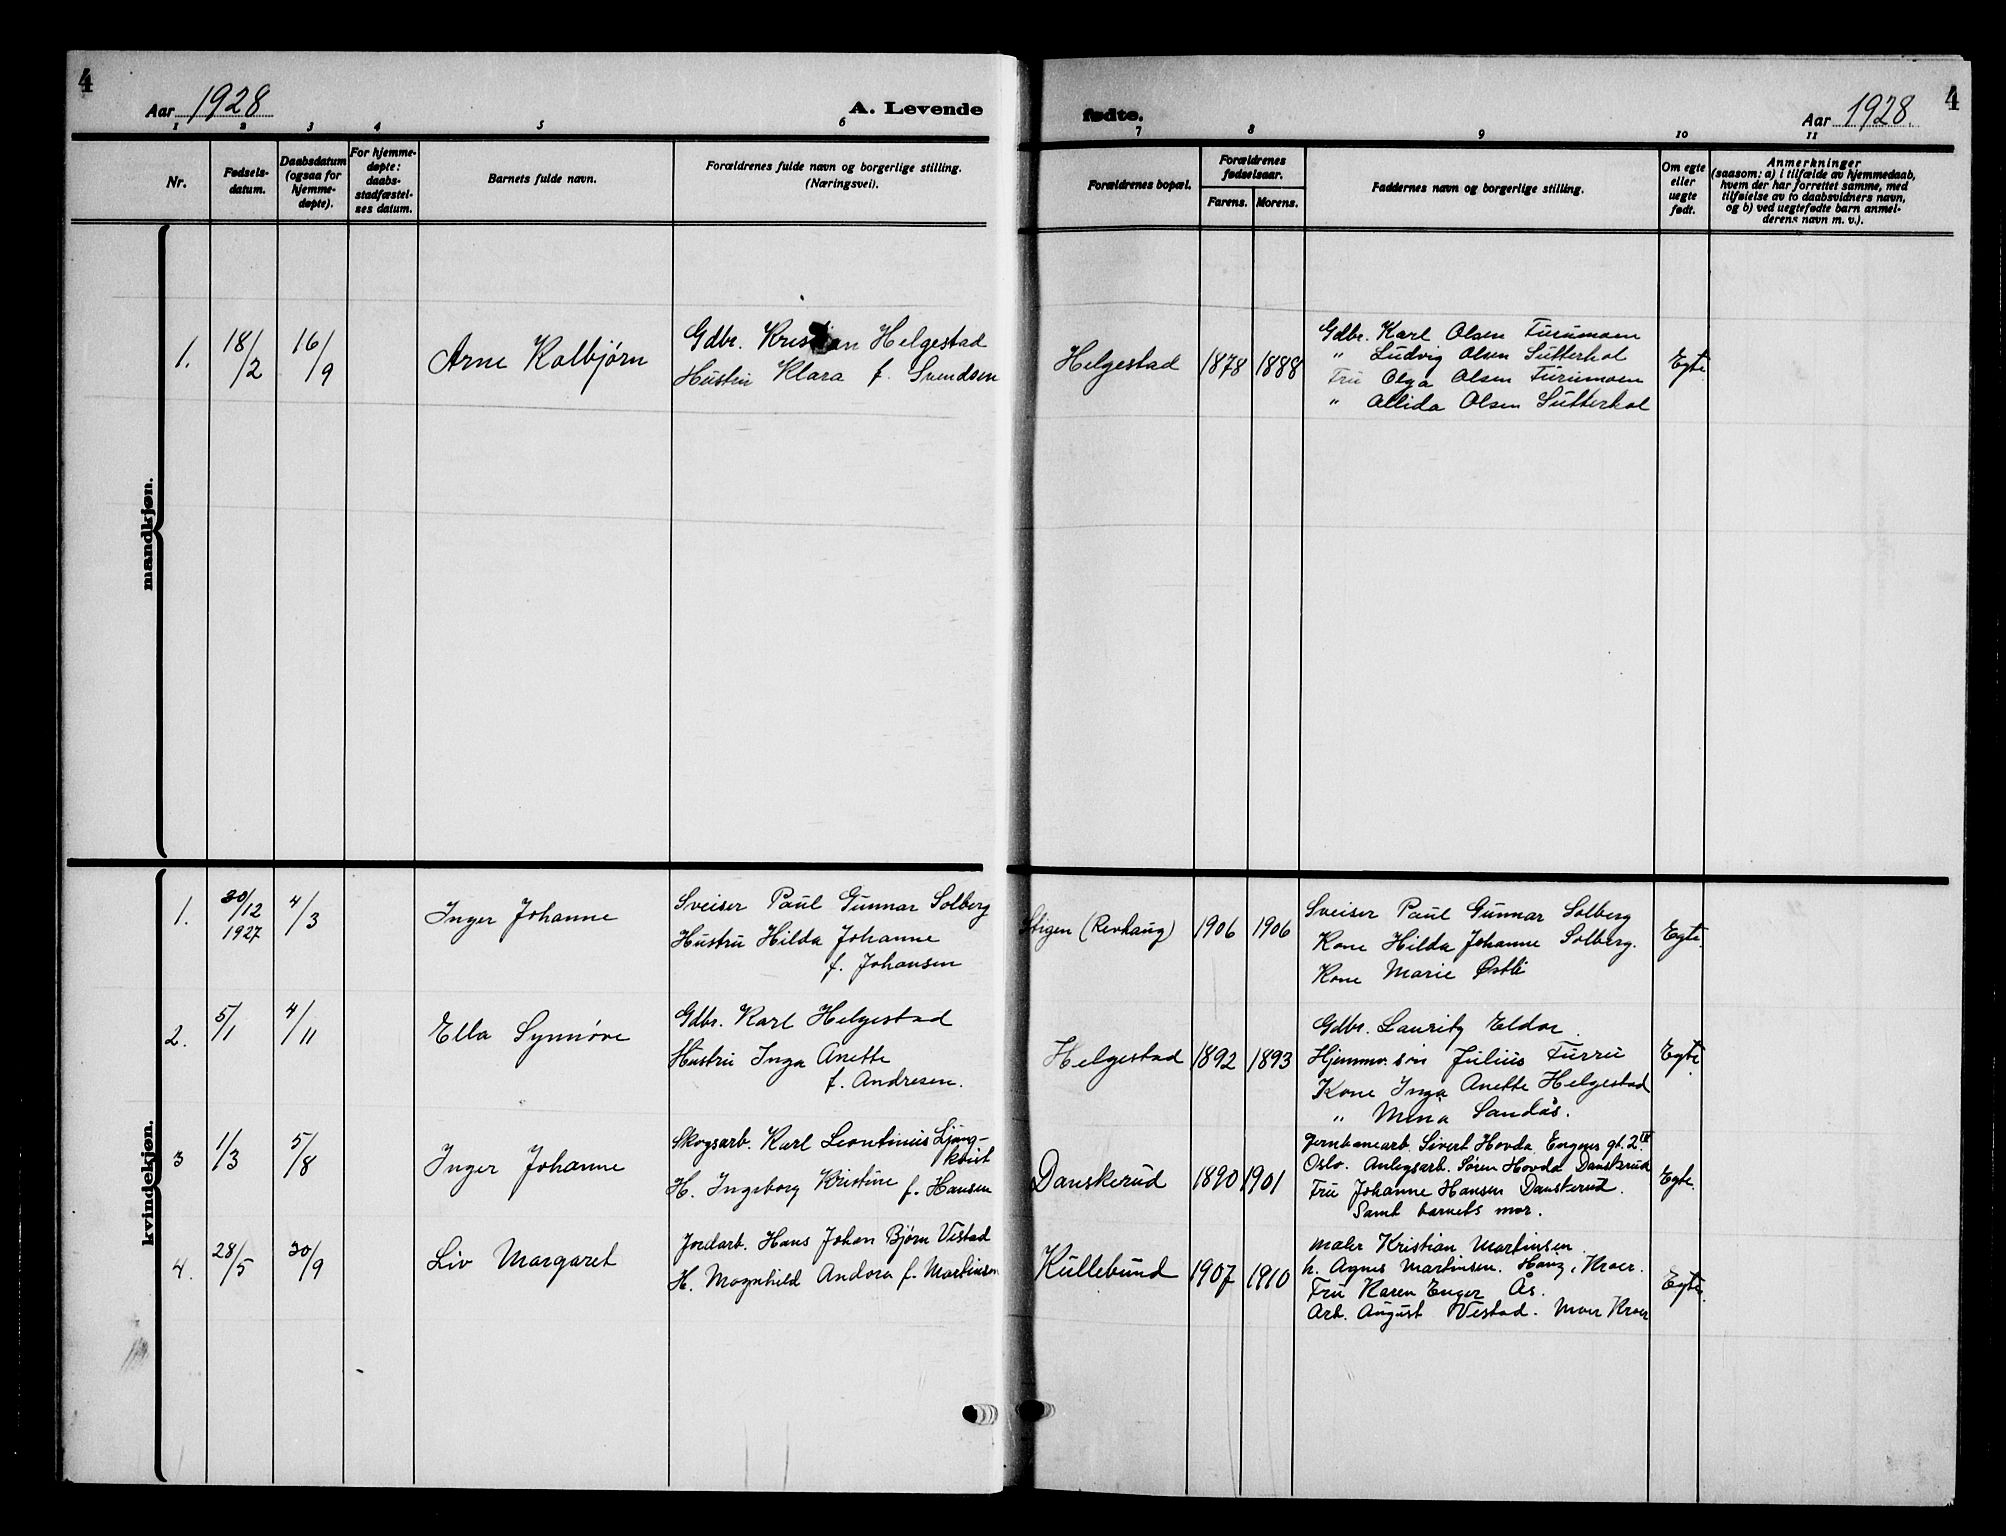 4
Aar 1928
A. Levende
fødte.
Aar 1928.
4
1 2 3 4 5 6 7 8 9 10 11
Nr.
Fødsels-
datum.
Daabsdatum
(ogsaa for
hjemme-
døpte).
For hjemme-
døpte:
daabs-
stadfæstel-
ses datum.
Barnets fulde navn.
Forældrenes fulde navn og borgerlige stilling.
(Næringsvei).
Forældrenes bopæl.
Forældrenes
fødselsaar.
Farens. Morens.
Faddernes navn og borgerlige stilling.
Om egte
eller
uegte
født.
Anmerkninger
(saasom: a) i tilfælde av hjemmedaab,
hvem der har forrettet samme, med
tilføielse av to daabsvidners navn,
og b) ved uegtefødte barn anmel-
derens navn m. v.).
mandkjøn.
1.
18/2
16/9
Arne Kolbjørn
Gdbr. Kristian Helgestad
Hustru Klara f. Svendsen
Helgestad
1878
1888
Gdbr. Karl Olsen Furumoen
" Ludvig Olsen Sutterhol
Fru Olga Olsen Furumoen
" Allida Olsen Sutterhol
Egte.
kvindekjøn.
1.
30/12
1927
4/3
Inger Johanne
Sveiser Paul Gunnar Solberg
Hustru Hilda Johanne
f. Johansen
Stigen (Revhaug)
1906
1906
Sveiser Paul Gunnar Solberg
Kone Hilda Johanne Solberg.
Kone Marie Østli
Egte.
2.
5/1
4/11
Ella Synnøve
Gdbr. Karl Helgestad
Hustru Inga Anette
f. Andresen.
Helgestad
1892
1893
Gdbr. Lauritz Eldor.
Hjemmv. søn Julius Furru
Kone Inga Anette Helgestad
" Mina Sandås.
Egte.
3
1/3
5/8
Inger Johanne
Skogsarb. Karl Leontinius Ljung-
kvist
H. Ingeborg Kristine f. Hansen
Danskerud
1890
1901
Jernbanearb. Sivert Hovda Engens gt. 2 IV
Oslo. Anlegsarb. Søren Hovda Danskerud
Fru Johanne Hansen Danskerud.
Samt barnets mor.
Egte.
4.
28/5
30/9
Liv Margaret
Jordarb. Hans Johan Bjørn Vestad
H. Magnhild Andora f. Martinsen
Kullebund
1907
1910
Maler Kristian Martinsen.
h. Agnes Martinsen. Haug, Kroer.
Fru Karen Enger Ås.
Arb. August Vestad. Moer Kroer
Egte.